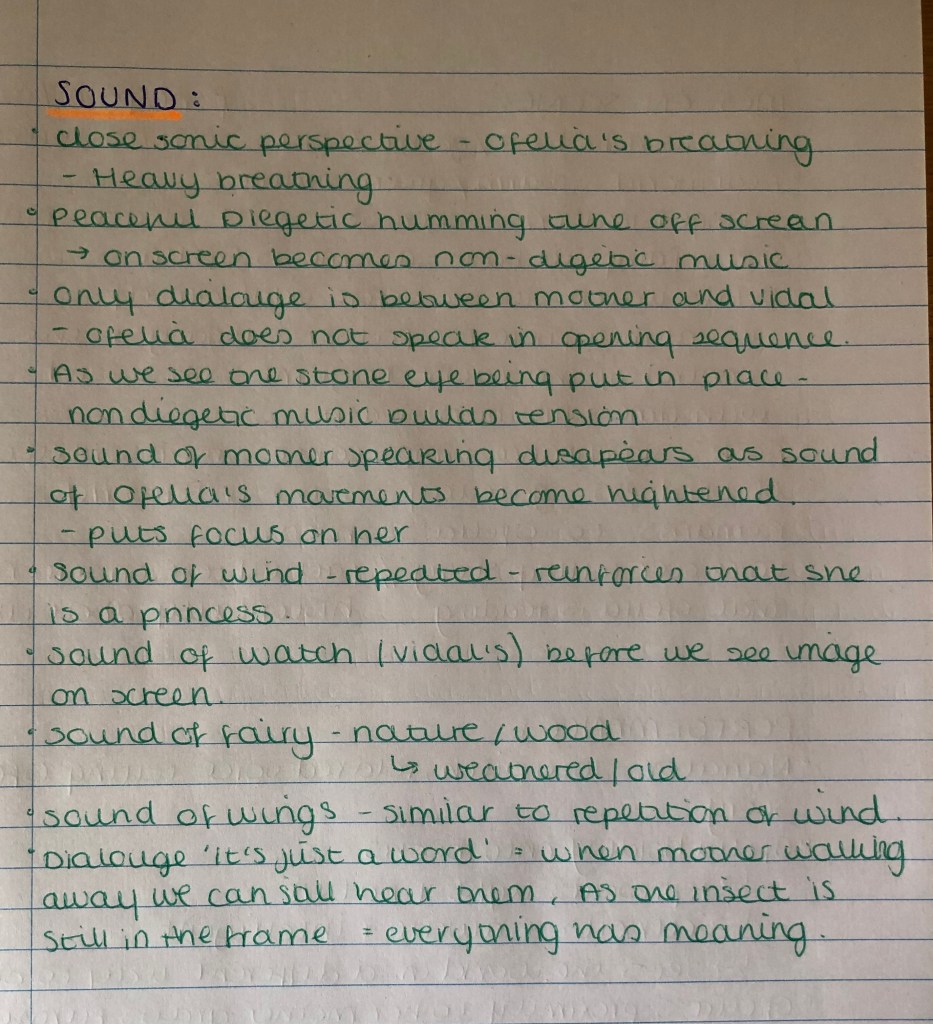 SOUND :
• close sonic perspective - Ofelia's breathing
- Heavy breathing
• peaceful Diegetic humming tune off screan
→ on screen becomes non-digetic music
• only dialouge is between mother and vidal
- Ofelia does not speak in opening sequence.
• As we see the stone eye being put in place -
non diegetic music builds tension
• sound of mother speaking disapears as sound
of Ofelia's movements become hightened.
- puts focus on her
• sound of wind - repeated - reinforces that she
is a princess.
• sound of watch (vidal's) before we see image
on screen.
• sound of fairy - nature / wood
↳ weathered / old
• sound of wings - similar to repetation of wind.
• Dialouge 'it's just a word' = when mother walking
away we can still hear them, As the insect is
still in the frame = everything has meaning.